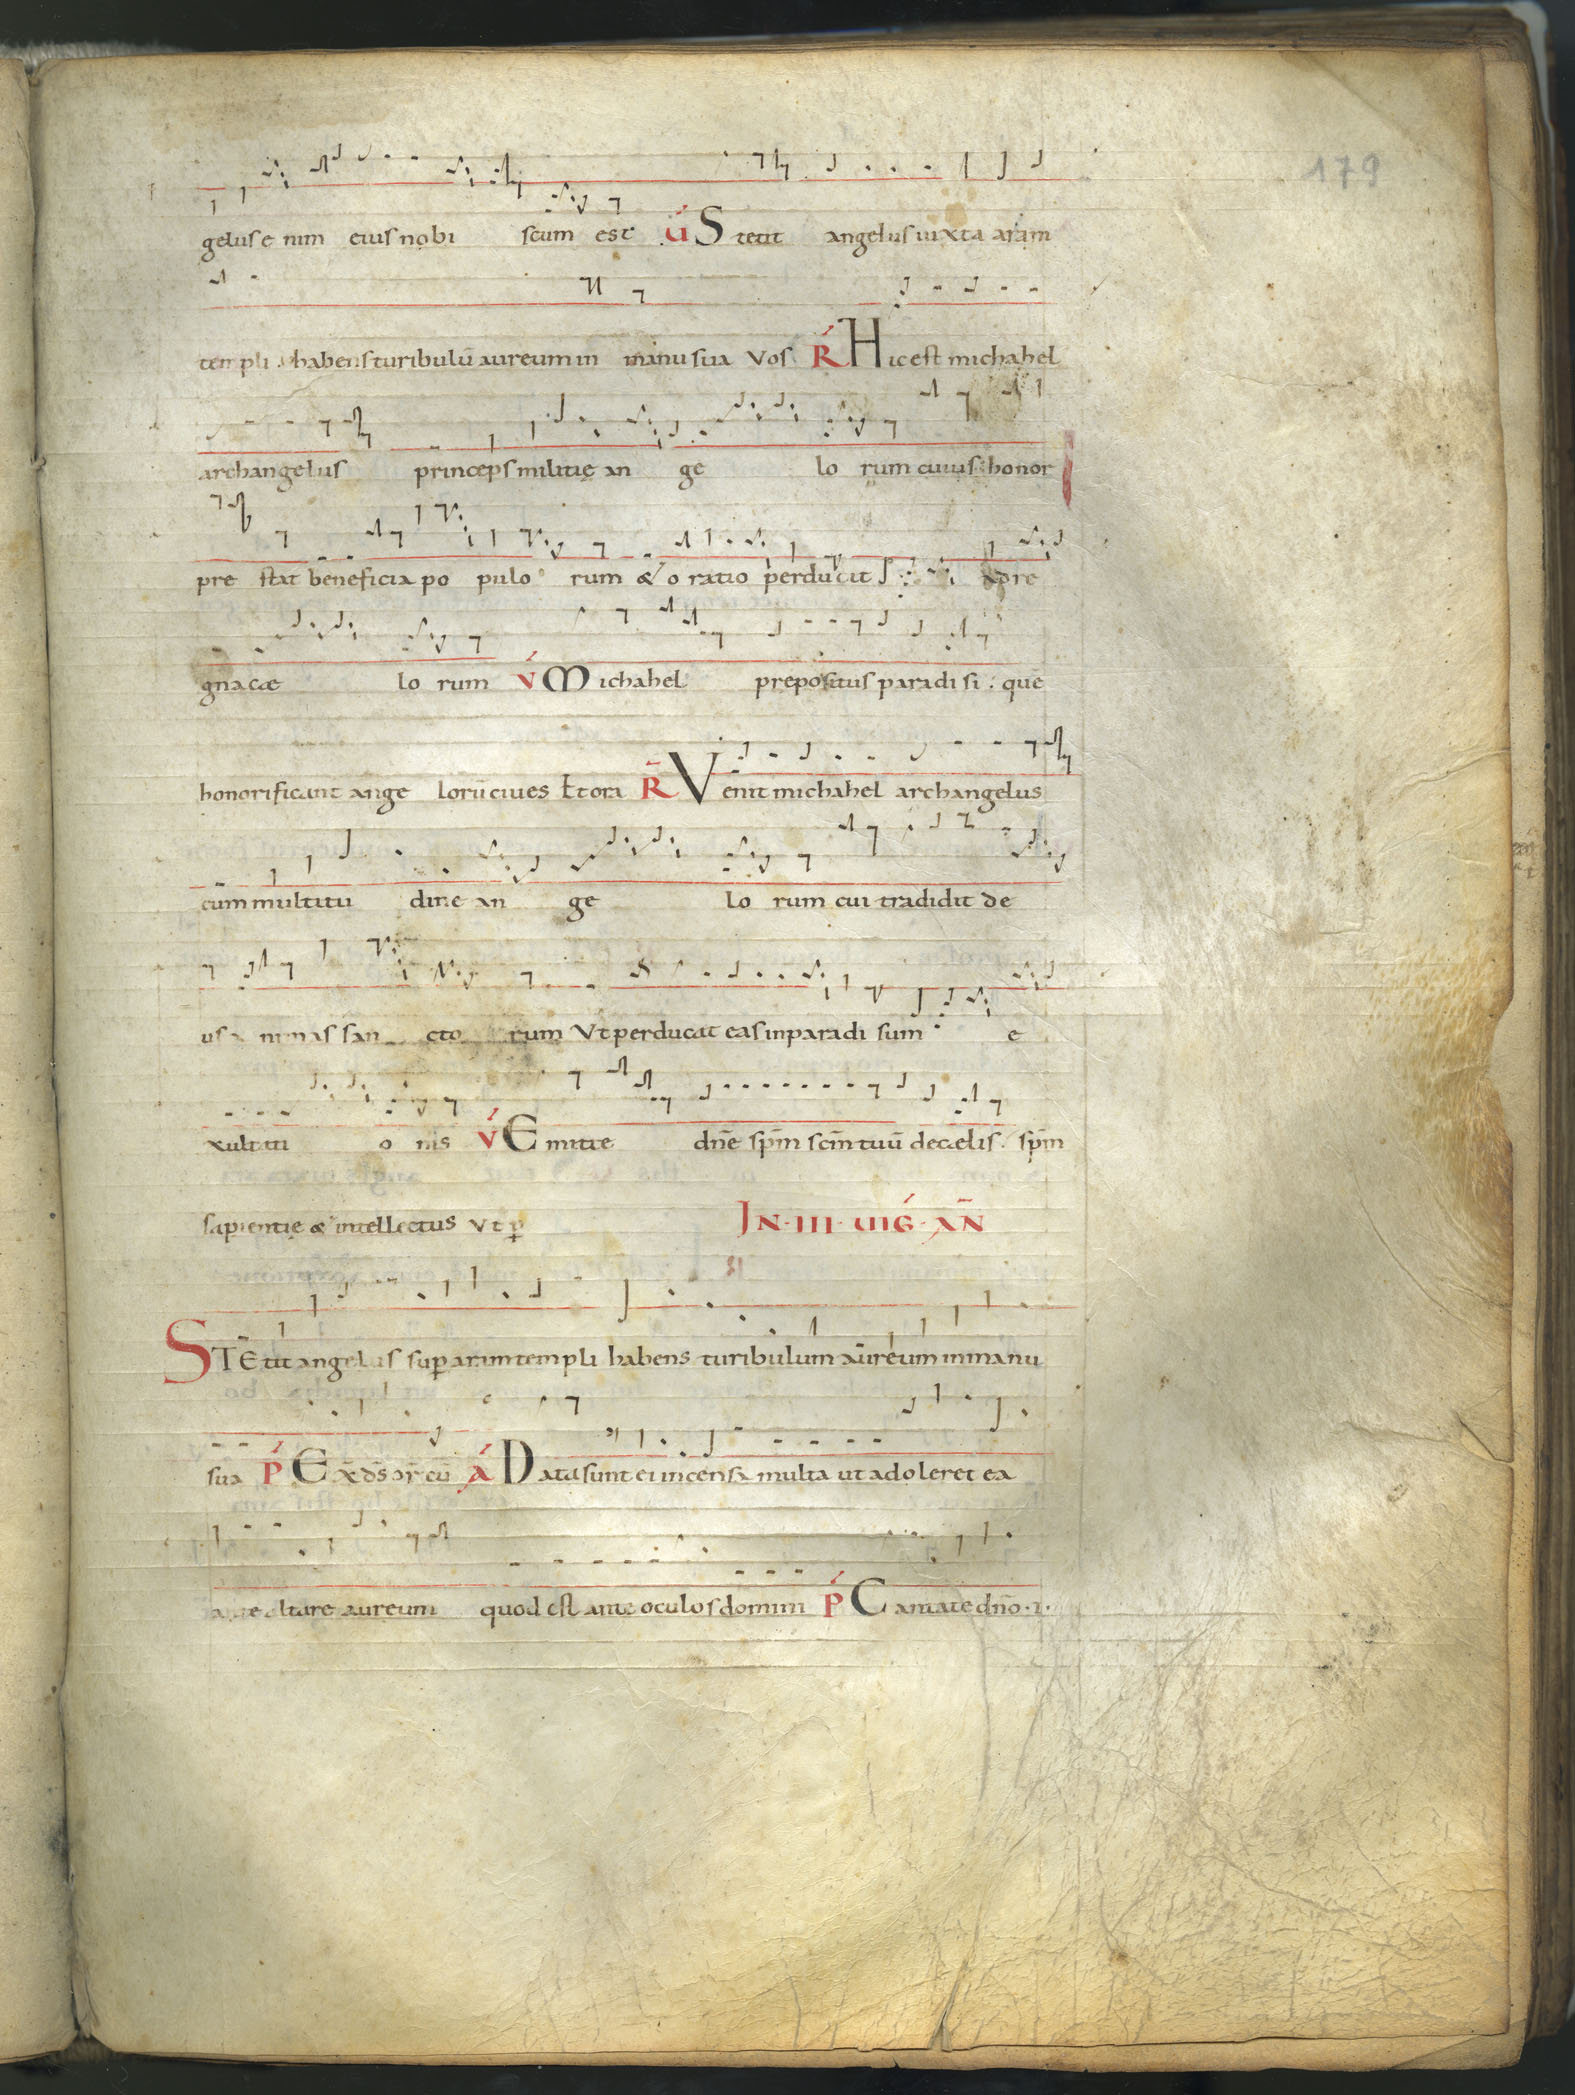 179
geluse nim eius nobi scum est v́ Stetit angelus iuxta aram
templi. habens turibulū aureum in manu sua Vos R̄ Hic est michahel
archangelus princeps militię an ge lo rum cuius honor
pre stat beneficia po pulo rum & o ratio perducit ad re
gna cæ lo rum v́ Michahel prepositus paradi si. que
honorificant ange lorū ciues Et ora R̄ Venit michahel archangelus
cum multitu dine an ge lo rum cui tradidit de
us a nimas san cto rum Vt perducat eas in paradi sum e
xultati o nis v́ Emitte dn̄e sp̄m sc̄m tuū de cælis. sp̄m
sapientię & intellectus Vt ꝑ JN·III·UIǴ·AN̄
STEtit angelus suꝑ aram templi habens turibulum aureum in manu
sua Ṕ Ex̄ d̄s or̄ cū Á Data sunt ei incensa multa ut adoleret ea
ante altare aureum quod est ante oculos domini Ṕ Cantate dn̄o·i·